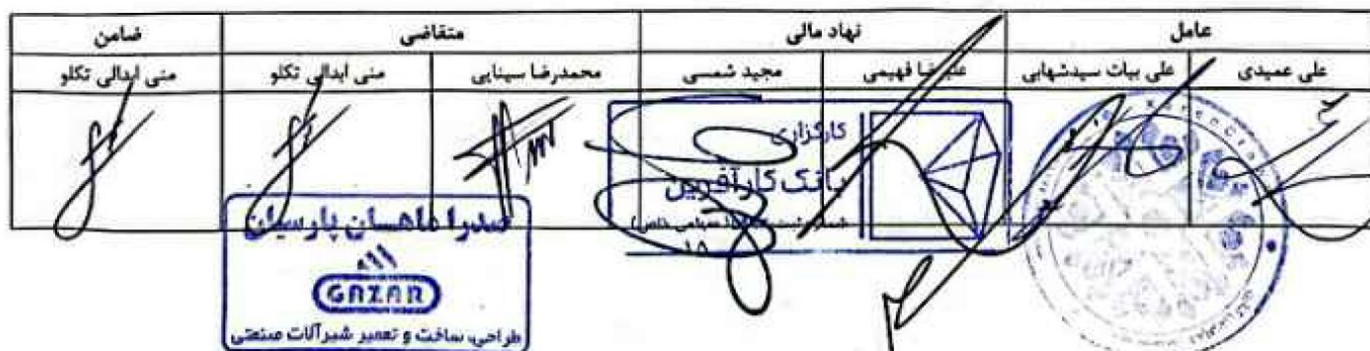 عامل نهاد مالی متقاضی ضامن
علی عمیدی علی بیات سیدشهابی علیرضا فهیمی مجید شمسی محمدرضا سینایی منی ابدالی تکلو منی ابدالی تکلو
کارگزاری
بانک کارآفرین
(سهامی خاص)
صدرا ماهسان پارسیان
GAZAR
طراحی، ساخت و تعمیر شیرآلات صنعتی